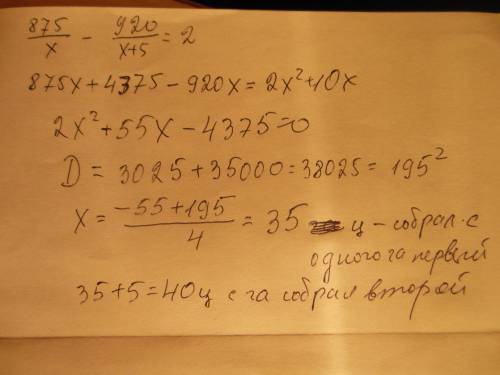 875/x - 920/(x+5) = 2
875x+4375-920x=2x²+10x
2x²+55x-4375=0
D = 3025+35000=38025= 195²
x = (-55+195)/4 = 35 ц - собрал с
одного га первый
35+5=40ц с га собрал второй